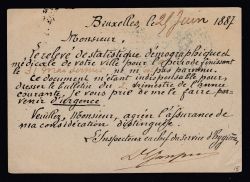 Bruxelles, le 21 Juin 1887
Monsieur,
Le relevé de statistique démographique et
médicale de votre ville pour la période finissant
le ne m'est pas parvenu.
Ce document m'étant indispensable pour
dresser le bulletin du trimestre de l'année
courante, je vous prie de me le faire par-
venir d'urgence
Veuillez, Monsieur, agréer l'assurance de
ma considération distinguée.
L'Inspecteur en chef du service d'hygiène,